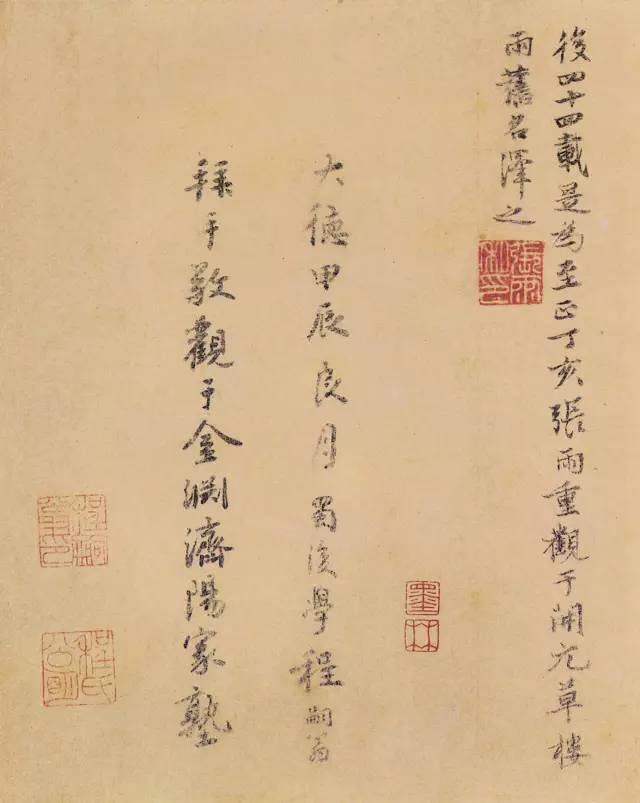 後四十四載是為至正丁亥張雨重觀于開元草樓
雨舊名澤之
大德甲辰良月蜀後學程嗣翁
拜手敬觀于金淵濟陽家塾
墨林